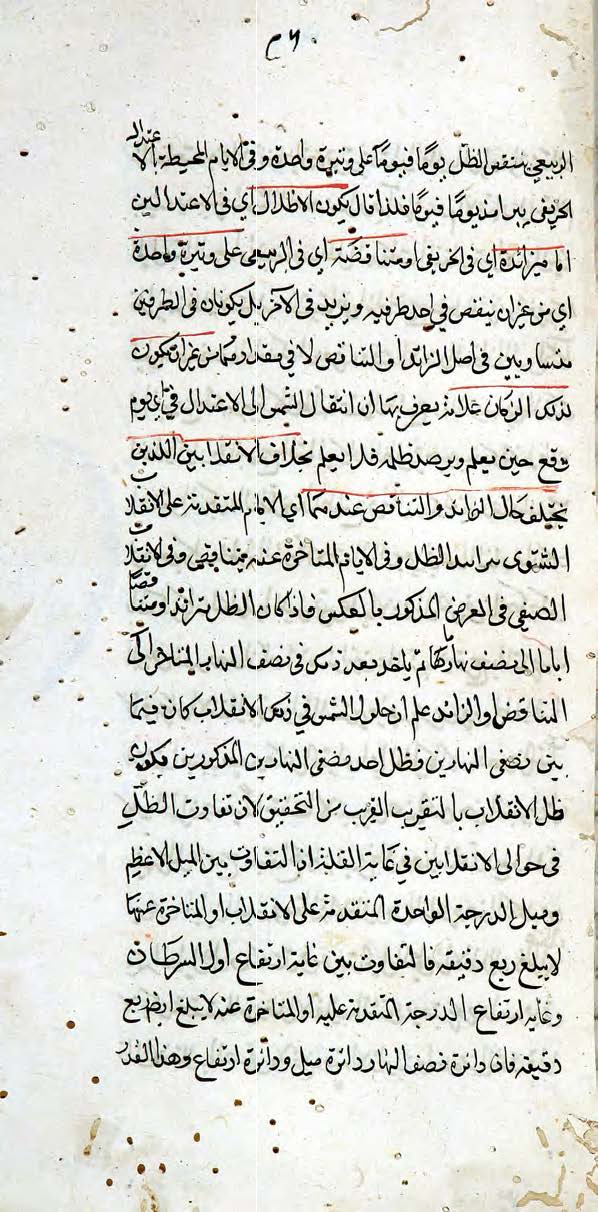 ٤٦
الربيعي ينتقص الظل يوما فيوما على وتيرة واحدة وفي الايام المحيطة بالاعتدال
الخريفي يتزايد يوما فيوما فلذا قال يكون الاظلال اي في الاعتدالين
اما متزائدة اي في الخريفي او متناقضة اي في الربيعي على وتيرة واحدة
اي من غير ان ينقص في احد طرفيه ويزيد في الآخر بل يكونان في الطرفين
متساويين في اصل الزائد او التناقص لا في مقدارهما من غير ان يكون
لذلك الزمان علامة يعرف بها ان انتقال الشمس الى الاعتدال في اي يوم
وقع حين يعلم ويرصد ظله فلا يعلم بخلاف الانقلابين اللذين
يختلف حال الزائد والتناقص عندهما اي الايام المتقدمة على الانقلاب
الشتوي يتزايد الظل وفي الايام المتاخرة عنه يتناقص وفي الانقلاب
الصيفي في العرض المذكور بالعكس فاذا كان الظل متزائدا او متناقصا
اياما الى نصف نهار ثم ياخذ بعد ذلك في نصف النهار المتاخر الى
التناقض او الزائد علم ان حلول الشمس في ذلك الانقلاب كان فيما
بين نصفي النهارين وظل احد نصفي النهارين المذكورين يكون
ظل الانقلاب بالتقريب القرب من التحقيق لان تفاوت الظل
في حوالى الانقلابين في غاية القلة اذ التفاوت بين الميل الاعظم
وميل الدرجة الواحدة المتقدمة على الانقلاب او المتاخرة عنها
لا يبلغ ربع دقيقه فالتفاوت بين غاية ارتفاع اول السرطان
وغايه ارتفاع الدرجة المتقدمة عليه او المتاخرة عنه لا يبلغ ايضا ربع
دقيقه فان دائرة نصف النهار دائرة ميل ودائرة ارتفاع وهذا القدر